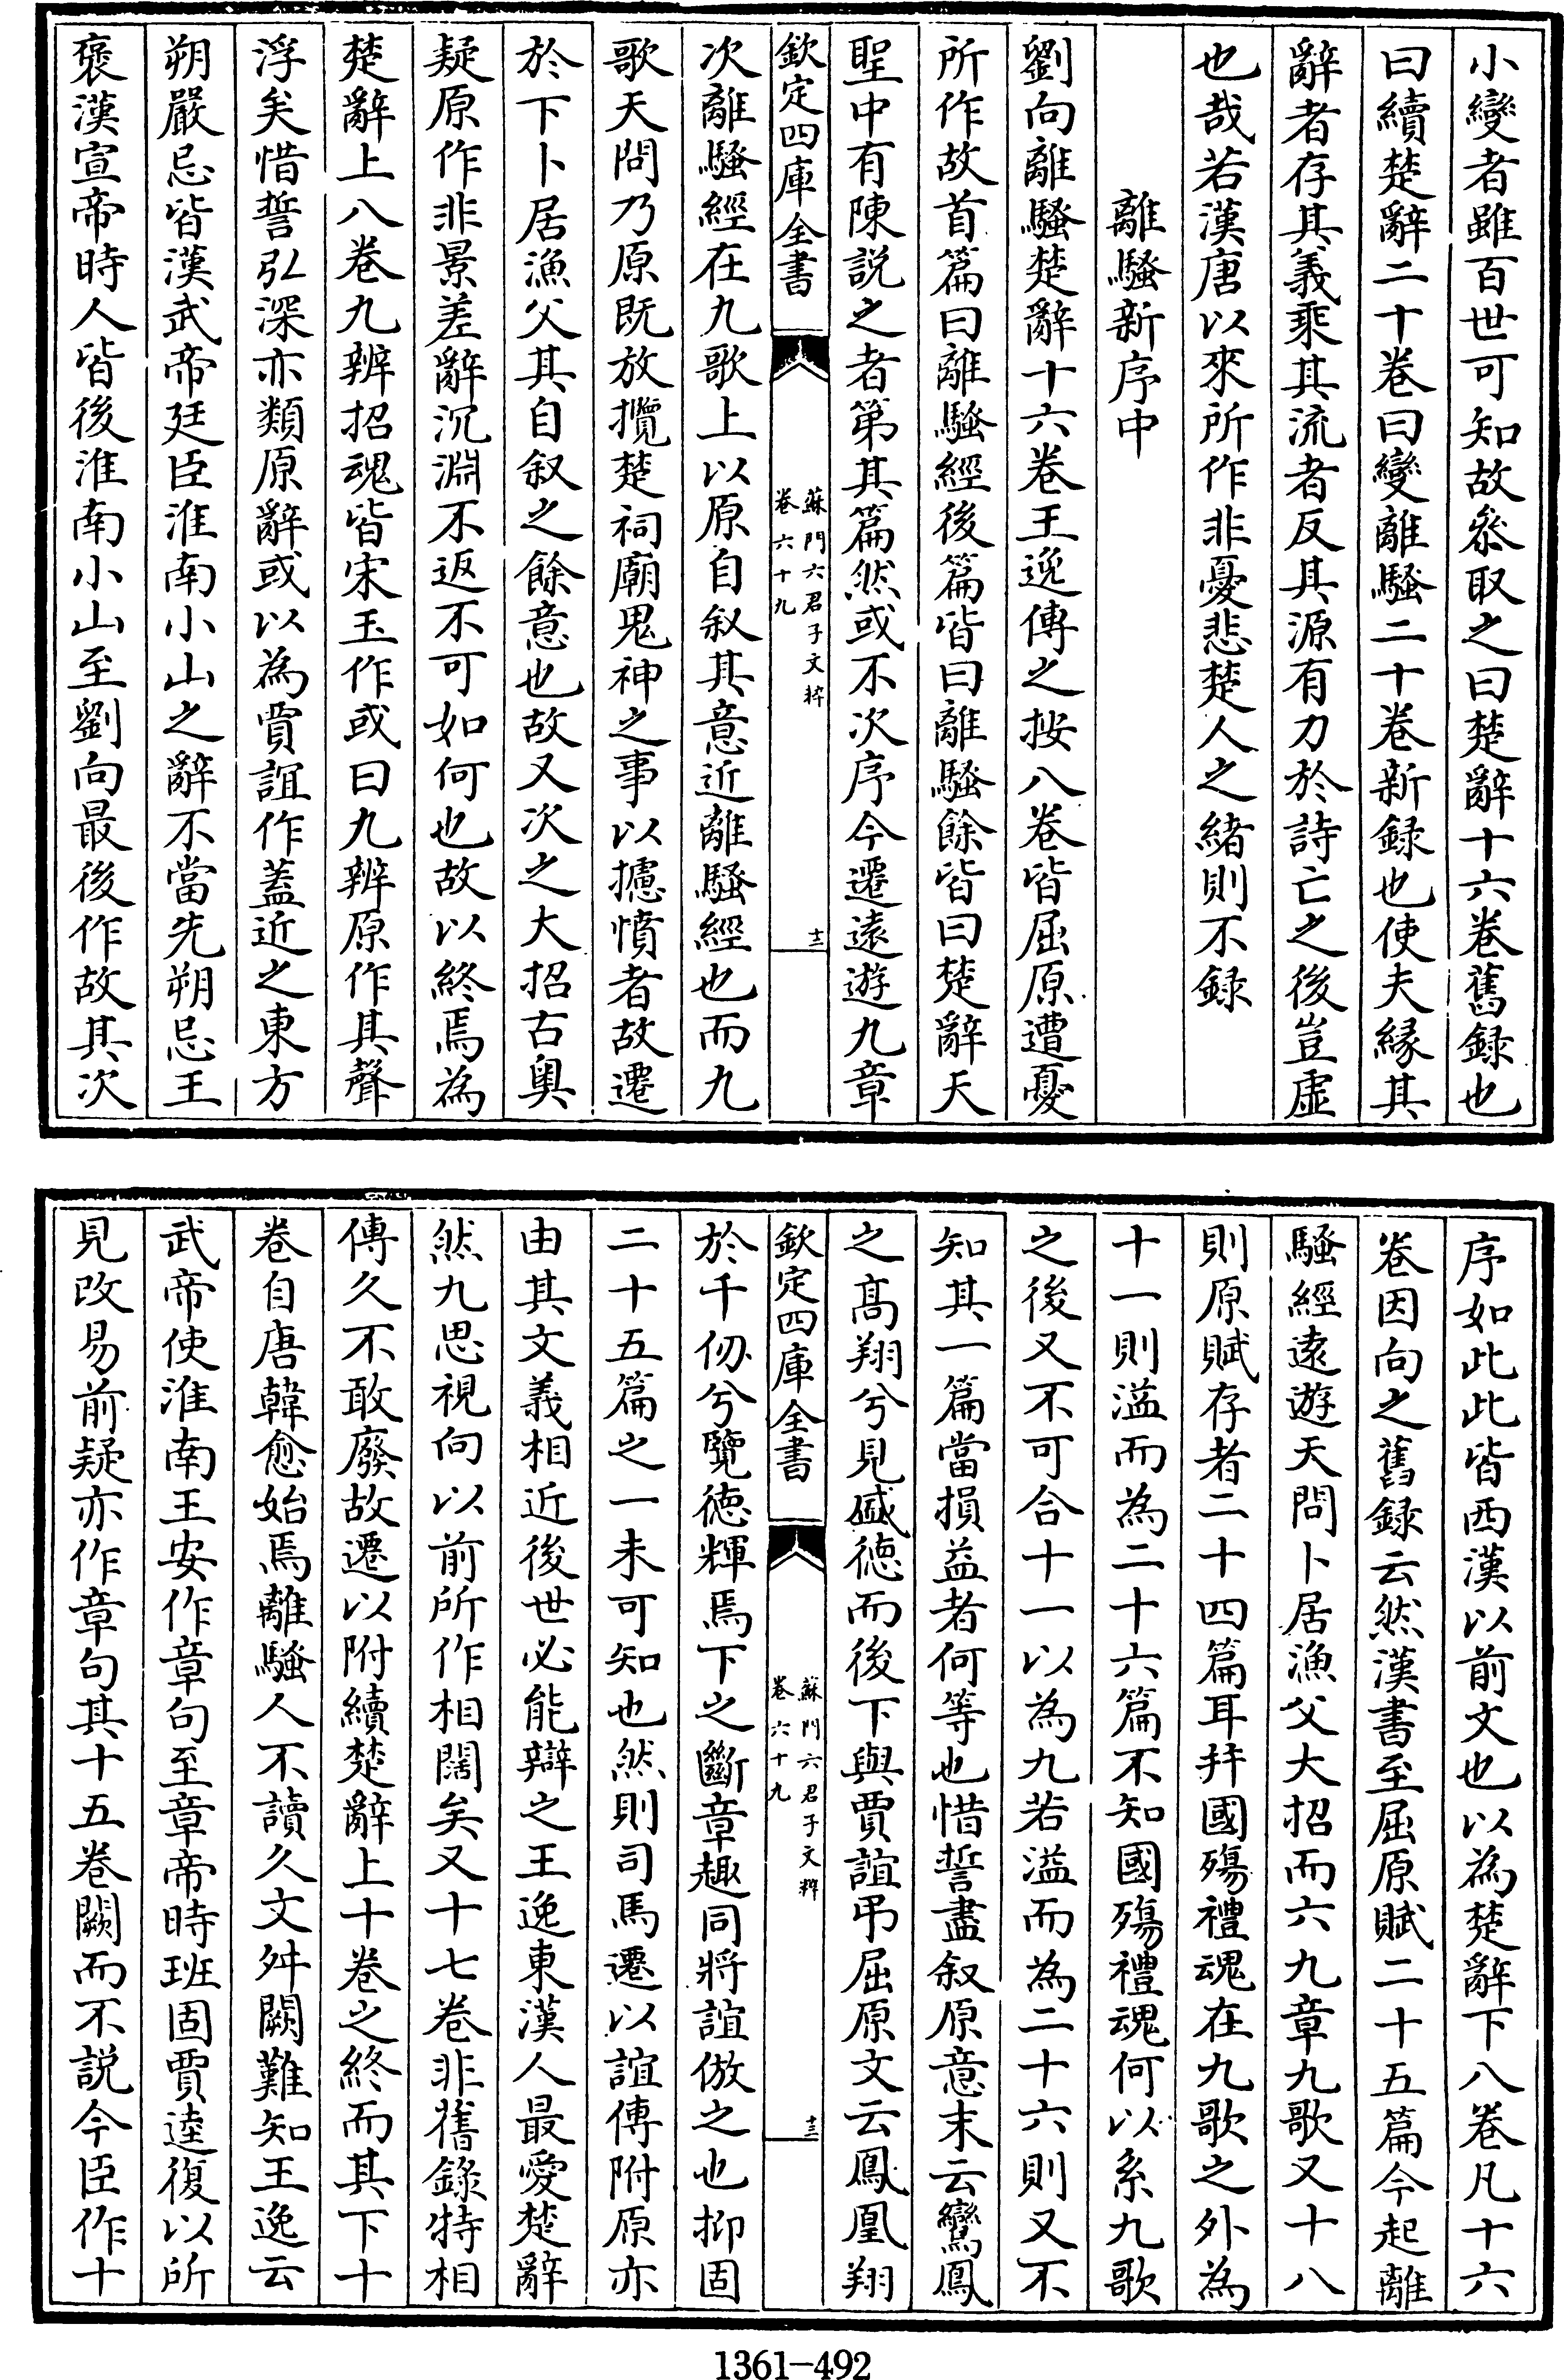 小變者雖百世可知故叅取之曰楚辭十六卷舊録也
曰續楚辭二十卷曰變離騷二十卷新録也使夫縁其
辭者存其義乘其流者反其源有力於詩亡之後豈虛
也哉若漢唐以來所作非憂悲楚人之緒則不録
離騷新序中
劉向離騷楚辭十六卷王逸傳之按八卷皆屈原遭憂
所作故首篇曰離騷經後篇皆曰離騷餘皆曰楚辭天
聖中有陳説之者第其篇然或不次序今遷遠遊九章
欽定四庫全書
蘇門六君子文粹
卷六十九
十二
次離騷經在九歌上以原自叙其意近離騷經也而九
歌天問乃原既放攬楚祠廟鬼神之事以攄憤者故遷
於下卜居漁父其自叙之餘意也故又次之大招古奥
疑原作非景差辭沉淵不返不可如何也故以終焉為
楚辭上八卷九辨招魂皆宋玉作或曰九辨原作其聲
浮矣惜誓弘深亦類原辭或以為賈誼作蓋近之東方
朔嚴忌皆漢武帝廷臣淮南小山之辭不當先朔忌王
褒漢宣帝時人皆後淮南小山至劉向最後作故其次
序如此此皆西漢以前文也以為楚辭下八卷凡十六
卷因向之舊録云然漢書至屈原賦二十五篇今起離
騷經遠遊天問卜居漁父大招而六九章九歌又十八
則原賦存者二十四篇耳并國殤禮魂在九歌之外為
十一則溢而為二十六篇不知國殤禮魂何以系九歌
之後又不可合十一以為九若溢而為二十六則又不
知其一篇當損益者何等也惜誓盡叙原意末云鸞鳳
之髙翔兮見盛徳而後下與賈誼弔屈原文云鳳凰翔
欽定四庫全書
蘇門六君子文粹
卷六十九
十三
於千仞兮覽徳輝焉下之斷章趣同將誼倣之也抑固
二十五篇之一未可知也然則司馬遷以誼傳附原亦
由其文義相近後世必能辯之王逸東漢人最愛楚辭
然九思視向以前所作相闊矣又十七卷非舊錄特相
傳久不敢廢故遷以附續楚辭上十卷之終而其下十
卷自唐韓愈始焉離騷人不讀久文舛闕難知王逸云
武帝使淮南王安作章句至章帝時班固賈逵復以所
見改易前疑亦作章句其十五卷闕而不説今臣作十
1361-492